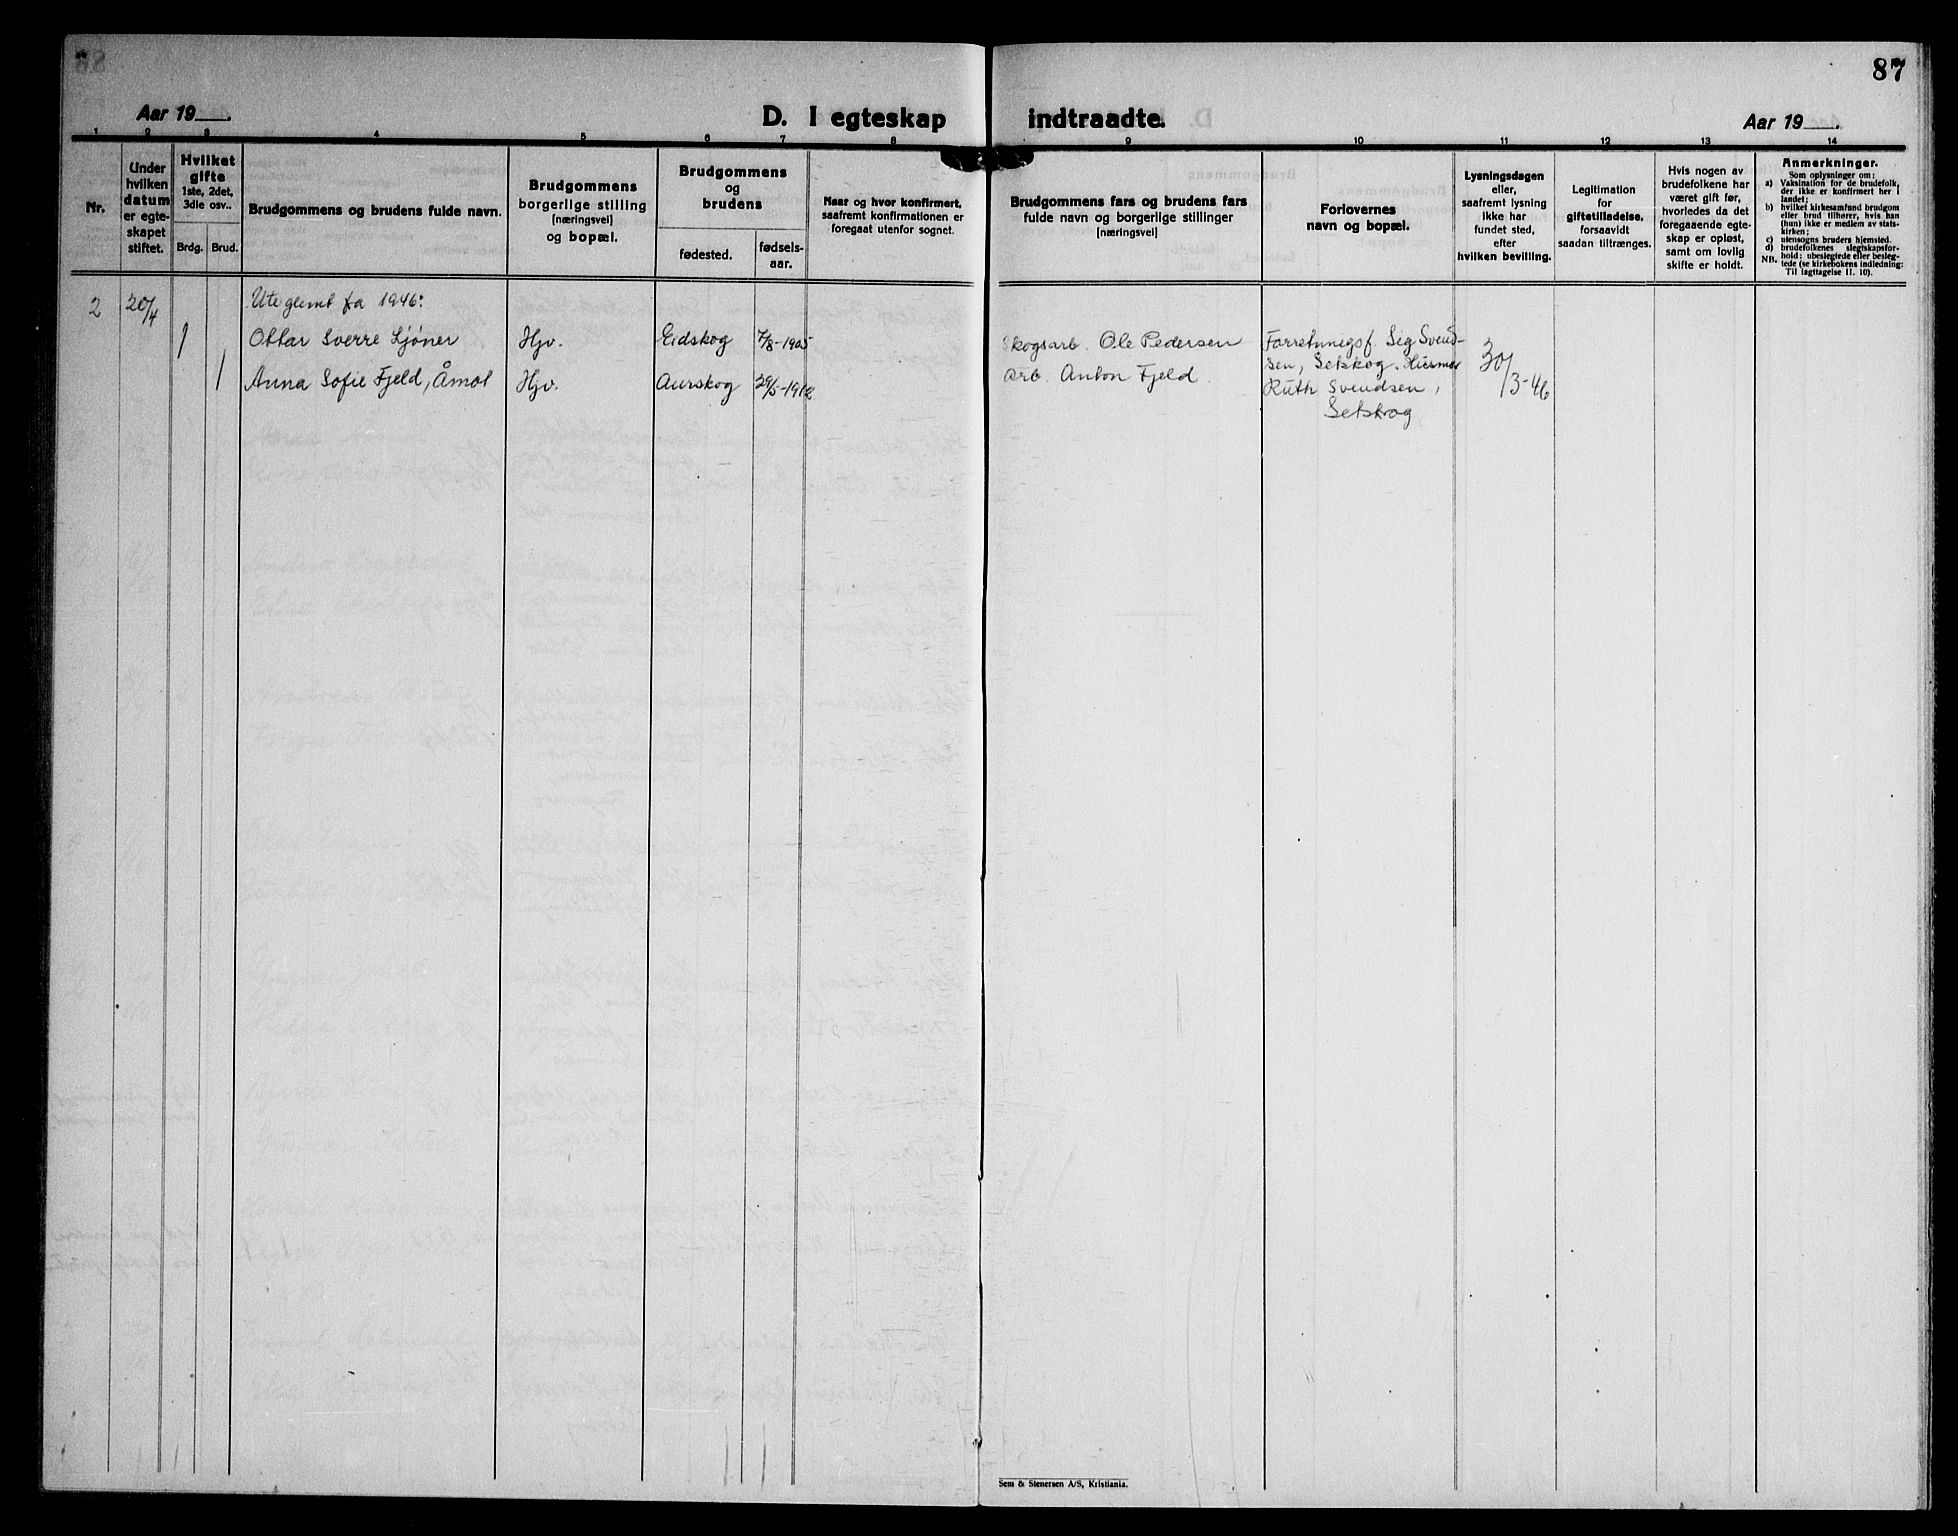 87
Aar 19____.
D. I egteskap indtraadte.
Aar 19____.
1 2 3 4 5 6 7 8 9 10 11 12 13 14
Nr.
Under
hvilken
datum
er egte-
skapet
stiftet.
Hvilket
gifte
1ste, 2det,
3die osv..
Brdg.
Brud.
Brudgommens og brudens fulde navn.
Brudgommens
borgerlige stilling
[næringsvei]
og bopæl.
Brudgommens
og
brudens
fødested.
fødsels-
aar.
Naar og hvor konfirmert,
saafremt konfirmationen er
foregaat utenfor sognet.
Brudgommens fars og brudens fars
fulde navn og borgerlige stillinger
[næringsvei]
Forlovernes
navn og bopæl.
Lysningsdagen
eller,
saafremt lysning
ikke har
fundet sted,
efter
hvilken bevilling.
Legitimation
for
giftetilladelse,
forsaavidt
saadan tiltrænges.
Hvis nogen av
brudefolkene har
været gift før,
hvorledes da det
foregaaende egte-
skap er opløst,
samt om lovlig
skifte er holdt.
Anmerkninger.
Som oplysninger om:
a) Vaksination for de brudefolk,
der ikke er konfirmert her i
landet;
b) hvilket kirkesamfund brudgom
eller brud tilhører, hvis han
(hun) ikke er medlem av stats-
kirken;
c) utensogns bruders hjemsted.
d) brudefolkenes slegtskapsfor-
hold: ubeslegtede eller besleg-
NB. tede (se kirkebokens indledning:
Til iagttagelse II. 10).
2 20/4 Uteglemt fra 1946:
1 Ottar Sverre Sjøner Hjv. Eidskog 7/8-1905 Skogsarb. Ole Pedersen Forretningsf. Sig Svend-
sen, Setskog. Husmor 30/3-46
1 Anna Sofie Fjeld, Åmot Hjv. Aurskog 29/5-1912 Arb. Anton Fjeld.
Ruth Svendsen,
Setskog
Sem & Stenersen A/S, Kristiania.